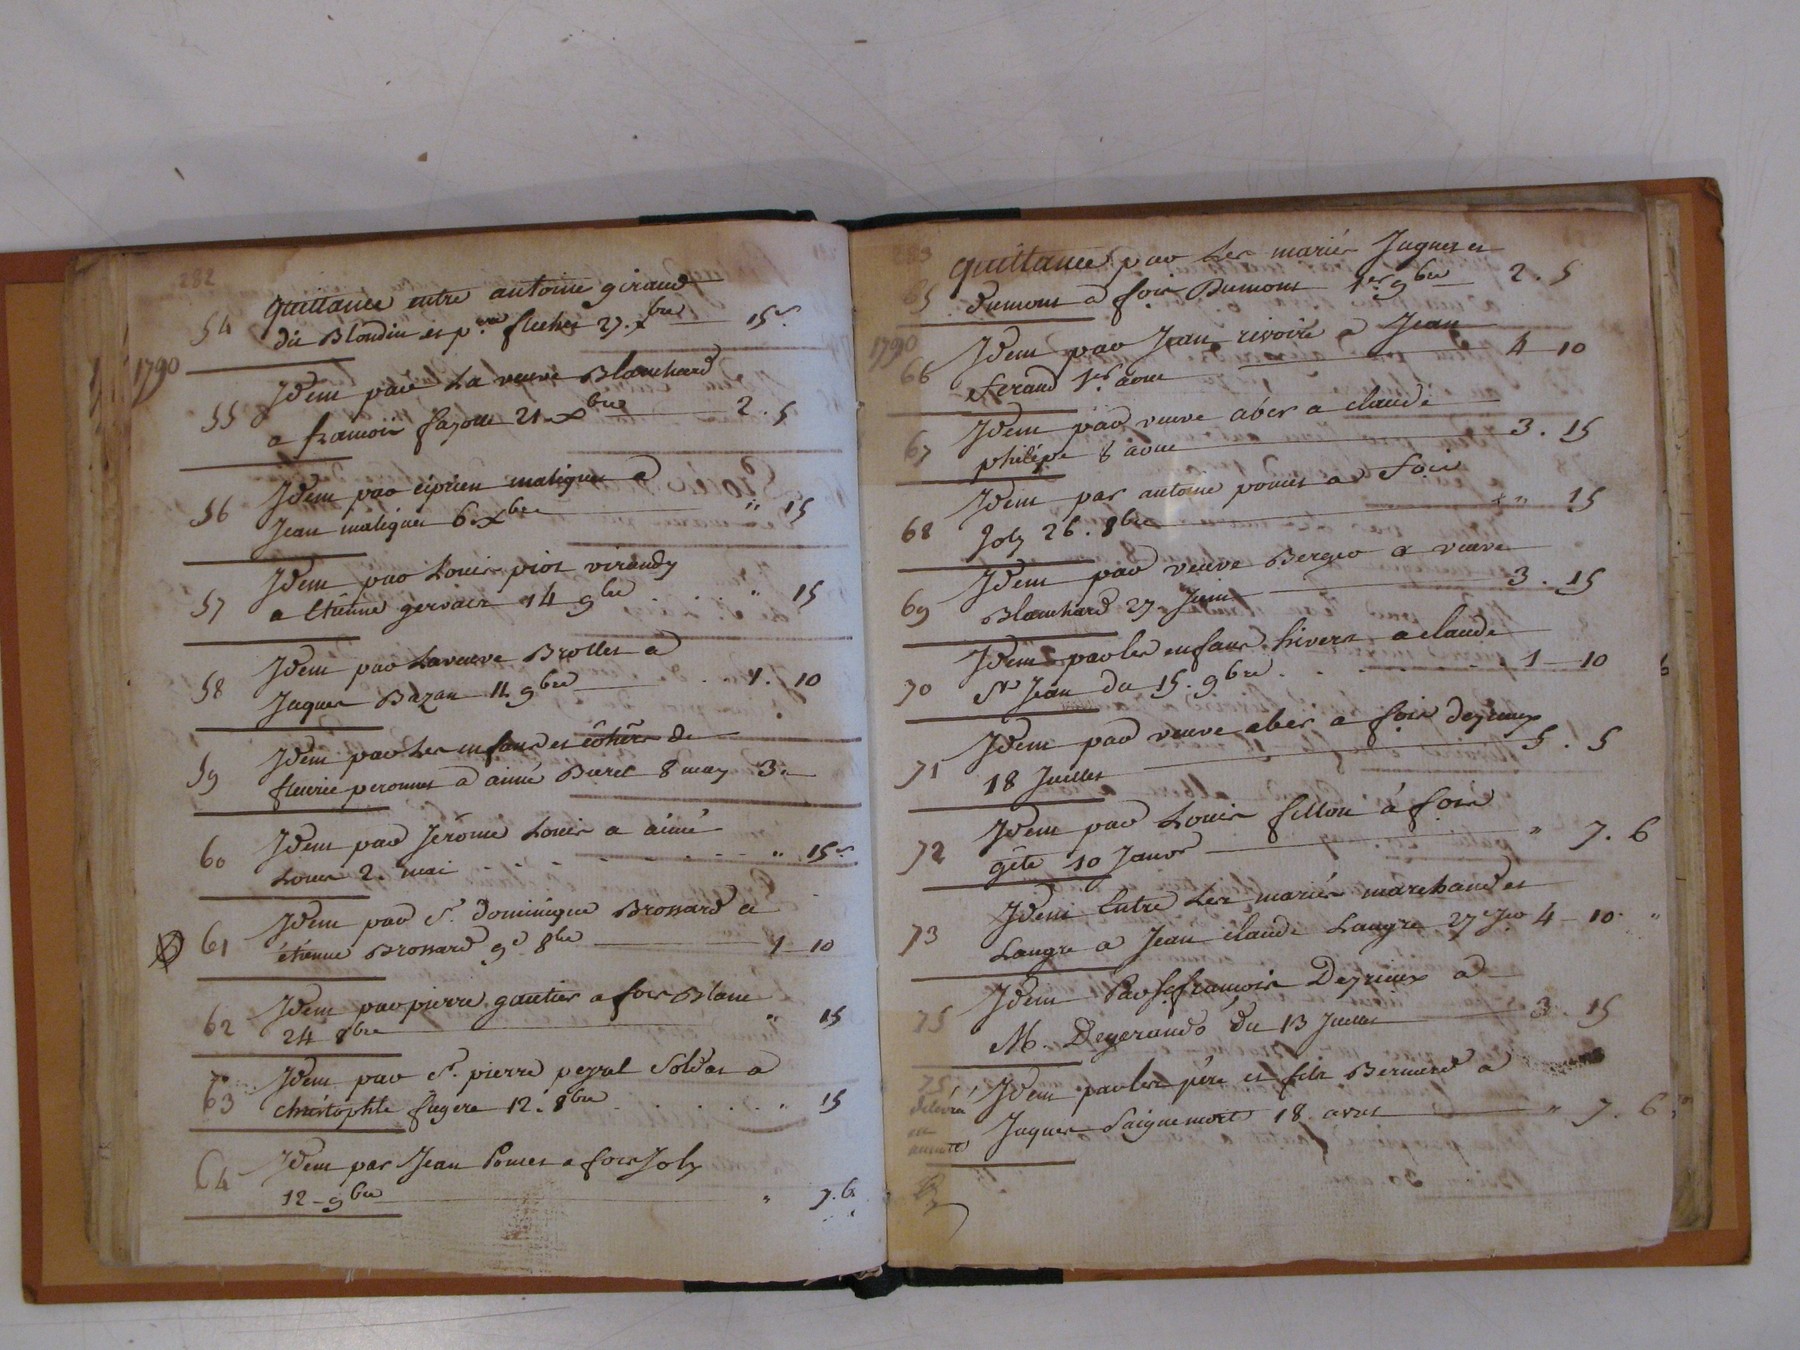 282
1790
54 quittance entre antoine giraud
dit Blondin et p.re flechet 27. xbre 15s
55 Idem par La veuve Blanchard
a francois fayolle 21. xbre 2. 5
56 Idem par ciprien matiguet a
Jean matiguet 6. xbre " 15
57 Idem par Louis piot
a Etienne gervais 14 9bre " 15
58 Idem par La veuve Brollet a
Jaques Bazan 11 9bre 1. 10
59 Idem par Les enfans et cohers de
fleurie peronnet a aimé Burel 8 may 3.
60 Idem par Jerôme Louis a aimé
Louis 2. mai " 15s
61 Idem par Sr. dominique Brossard a
étienne Brossard 9e 8bre 1 10
62 Idem par pierre gautier a fois Blanc
24 8bre " 15
63 Idem par Sr. pierre peyral Soldat a
christophle fugere 12. 8bre " 15
64 Idem par Jean Pomet a fois Joly
12 9bre " 7. 6
283
65 quittance par Les mariés Jaques et
dumont a fois Dumont 1er 9bre 2. 5
1790
66 Idem par Jean rivoire a Jean
ferand 1er aout 4 10
67 Idem par veuve aber a claude
philipe 8 aout 3. 15
68 Idem par antoine pomet a fois
Joly 26. 8bre " 15
69 Idem par veuve Berger a veuve
Blanchard 27 Juin 3. 15
70 Idem par les enfans hivert a claude
St Jean du 15. 9bre 1 10
71 Idem par veuve aber a fois deyrieux
18 Juillet 5. 5
72 Idem par Louis fillon à fois
gête 10 Janvr " 7. 6
73 Idem Entre Les mariés marchand et
Langre a Jean claude Langre 27 4 10
75 Idem Par Sr francois Deyrieux a
M. Degerando du 13 Juillet 3. 15
75 Idem par les père et fils Bernerd a
Jaques Saignemort 18 avril " 7. 6